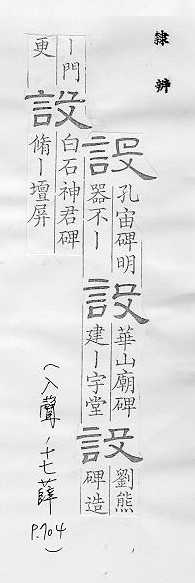 隸辨
設
孔宙碑明
器不ー
設
華山廟碑
建ー宇堂
設
劉熊
碑造
ー門
更
設
白石神君碑
脩ー壇屏
(入聲,十七薛 P.704)